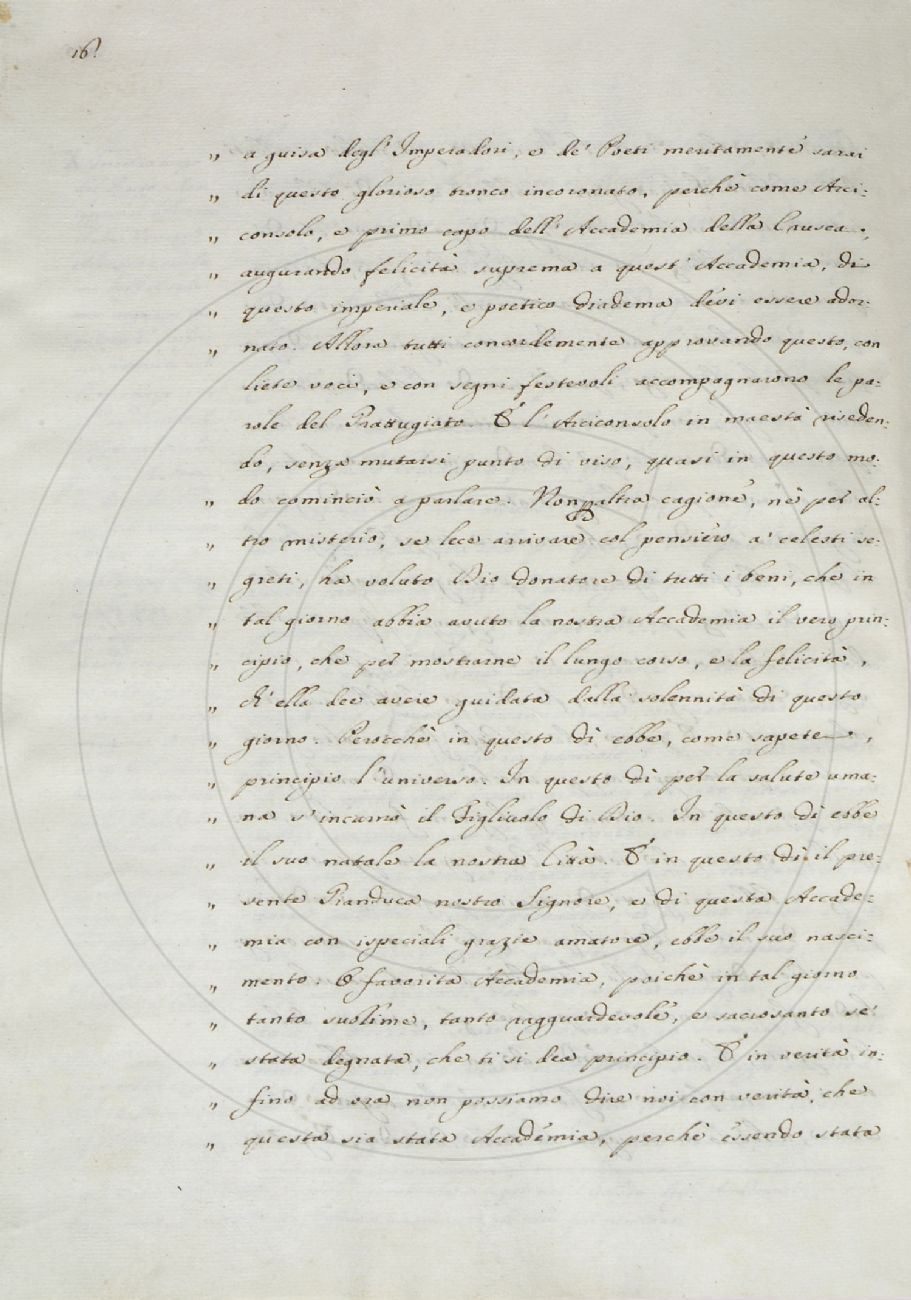 16.
„ a guisa degl' Imperadori, e de' Poeti meritamente sarai
„ di questo glorioso tronco incoronato, perchè come Arci:
„ consolo, e primo capo dell' Accademia della Crusca,
„ augurando felicità suprema a quest' Accademia, di
„ questo imperiale, e poetico diadema devi essere ador:
„ nato. Allora tutti concordemente approvando questo, con
liete voci, e con segni festevoli accompagnarono le pa:
role del Grattugiato. E l' Arciconsolo in maestà riseden:
do, senza mutarsi punto di viso, quasi in questo mo:
„ do cominciò a parlare. Non p altra cagione, nè per al:
„ tro misterio, se lece arrivare col pensiero a' celesti se:
„ greti, ha voluto Dio donatore di tutti i beni, che in
„ tal giorno abbia avuto la nostra Accademia il vero prin:
„ cipio, che per mostrarne il lungo corso, e la felicità,
„ ch' ella dee avere guidata dalla solennità di questo
„ giorno. Perocchè in questo dì ebbe, come sapete,
„ principio l' universo. In questo dì per la salute uma:
„ na s' incarnò il Figliuolo di Dio. In questo dì ebbe
„ il suo natale la nostra Città. E in questo dì il pre:
„ sente Granduca nostro Signore, e di questa Accade:
„ mia con ispeciali grazie amatore, ebbe il suo nasci:
„ mento. O favorita Accademia, poichè in tal giorno
„ tanto sublime, tanto ragguardevole, e sacrosanto se'
„ stata degnata, che ti si dea principio. E in verità in:
„ fino ad ora non possiamo dire noi con verità, che
„ questa sia stata Accademia, perchè essendo stata